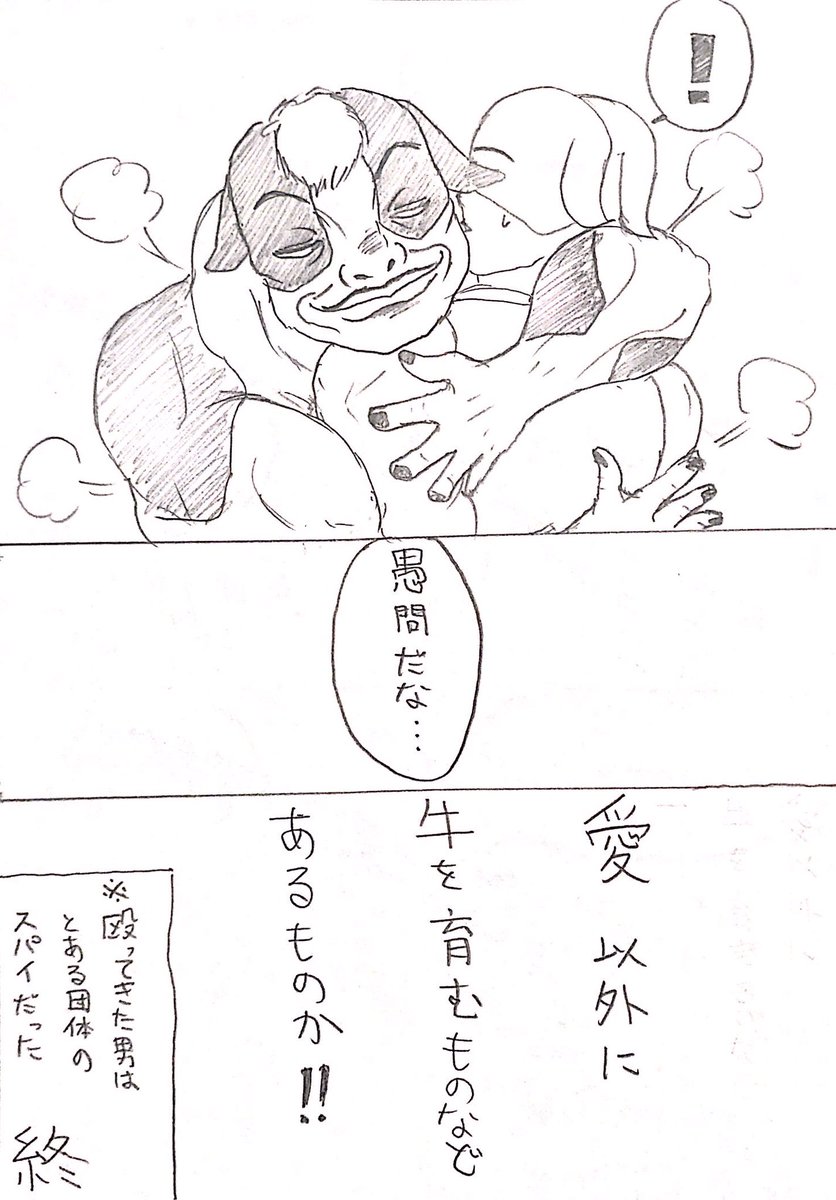 !
愚問だな…
愛 以外に
牛を育むものなど
あるものか!!
※殴ってきた男は
とある団体の
スパイだった
終